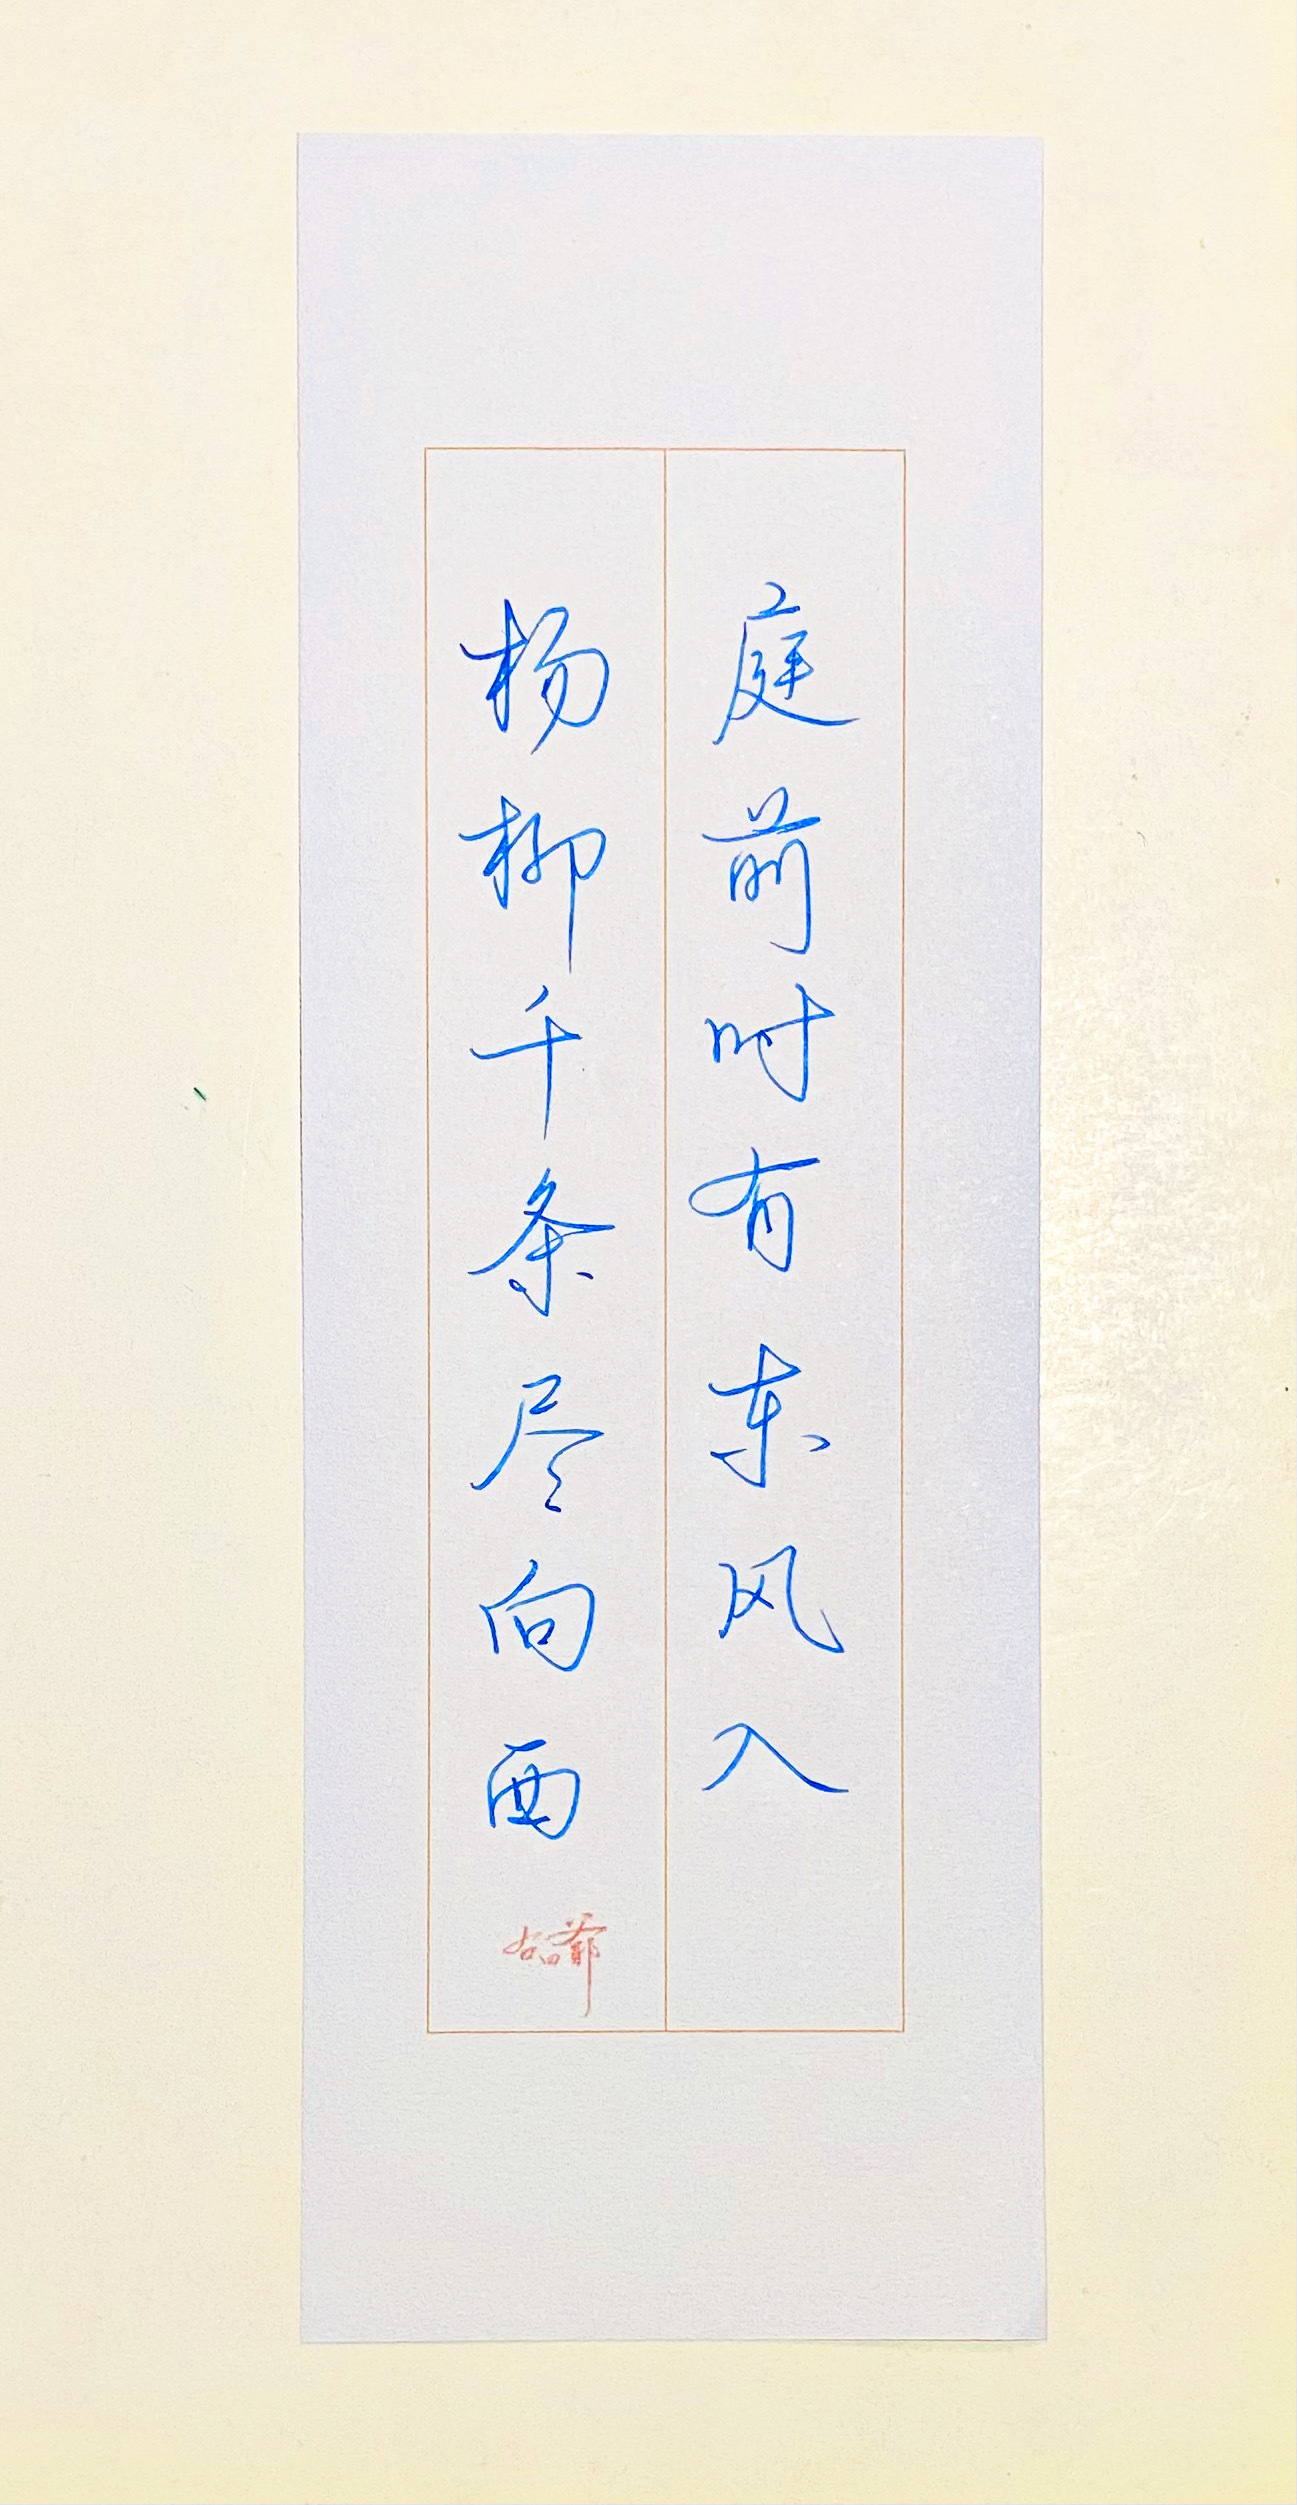 庭前时有东风入
杨柳千条尽向西